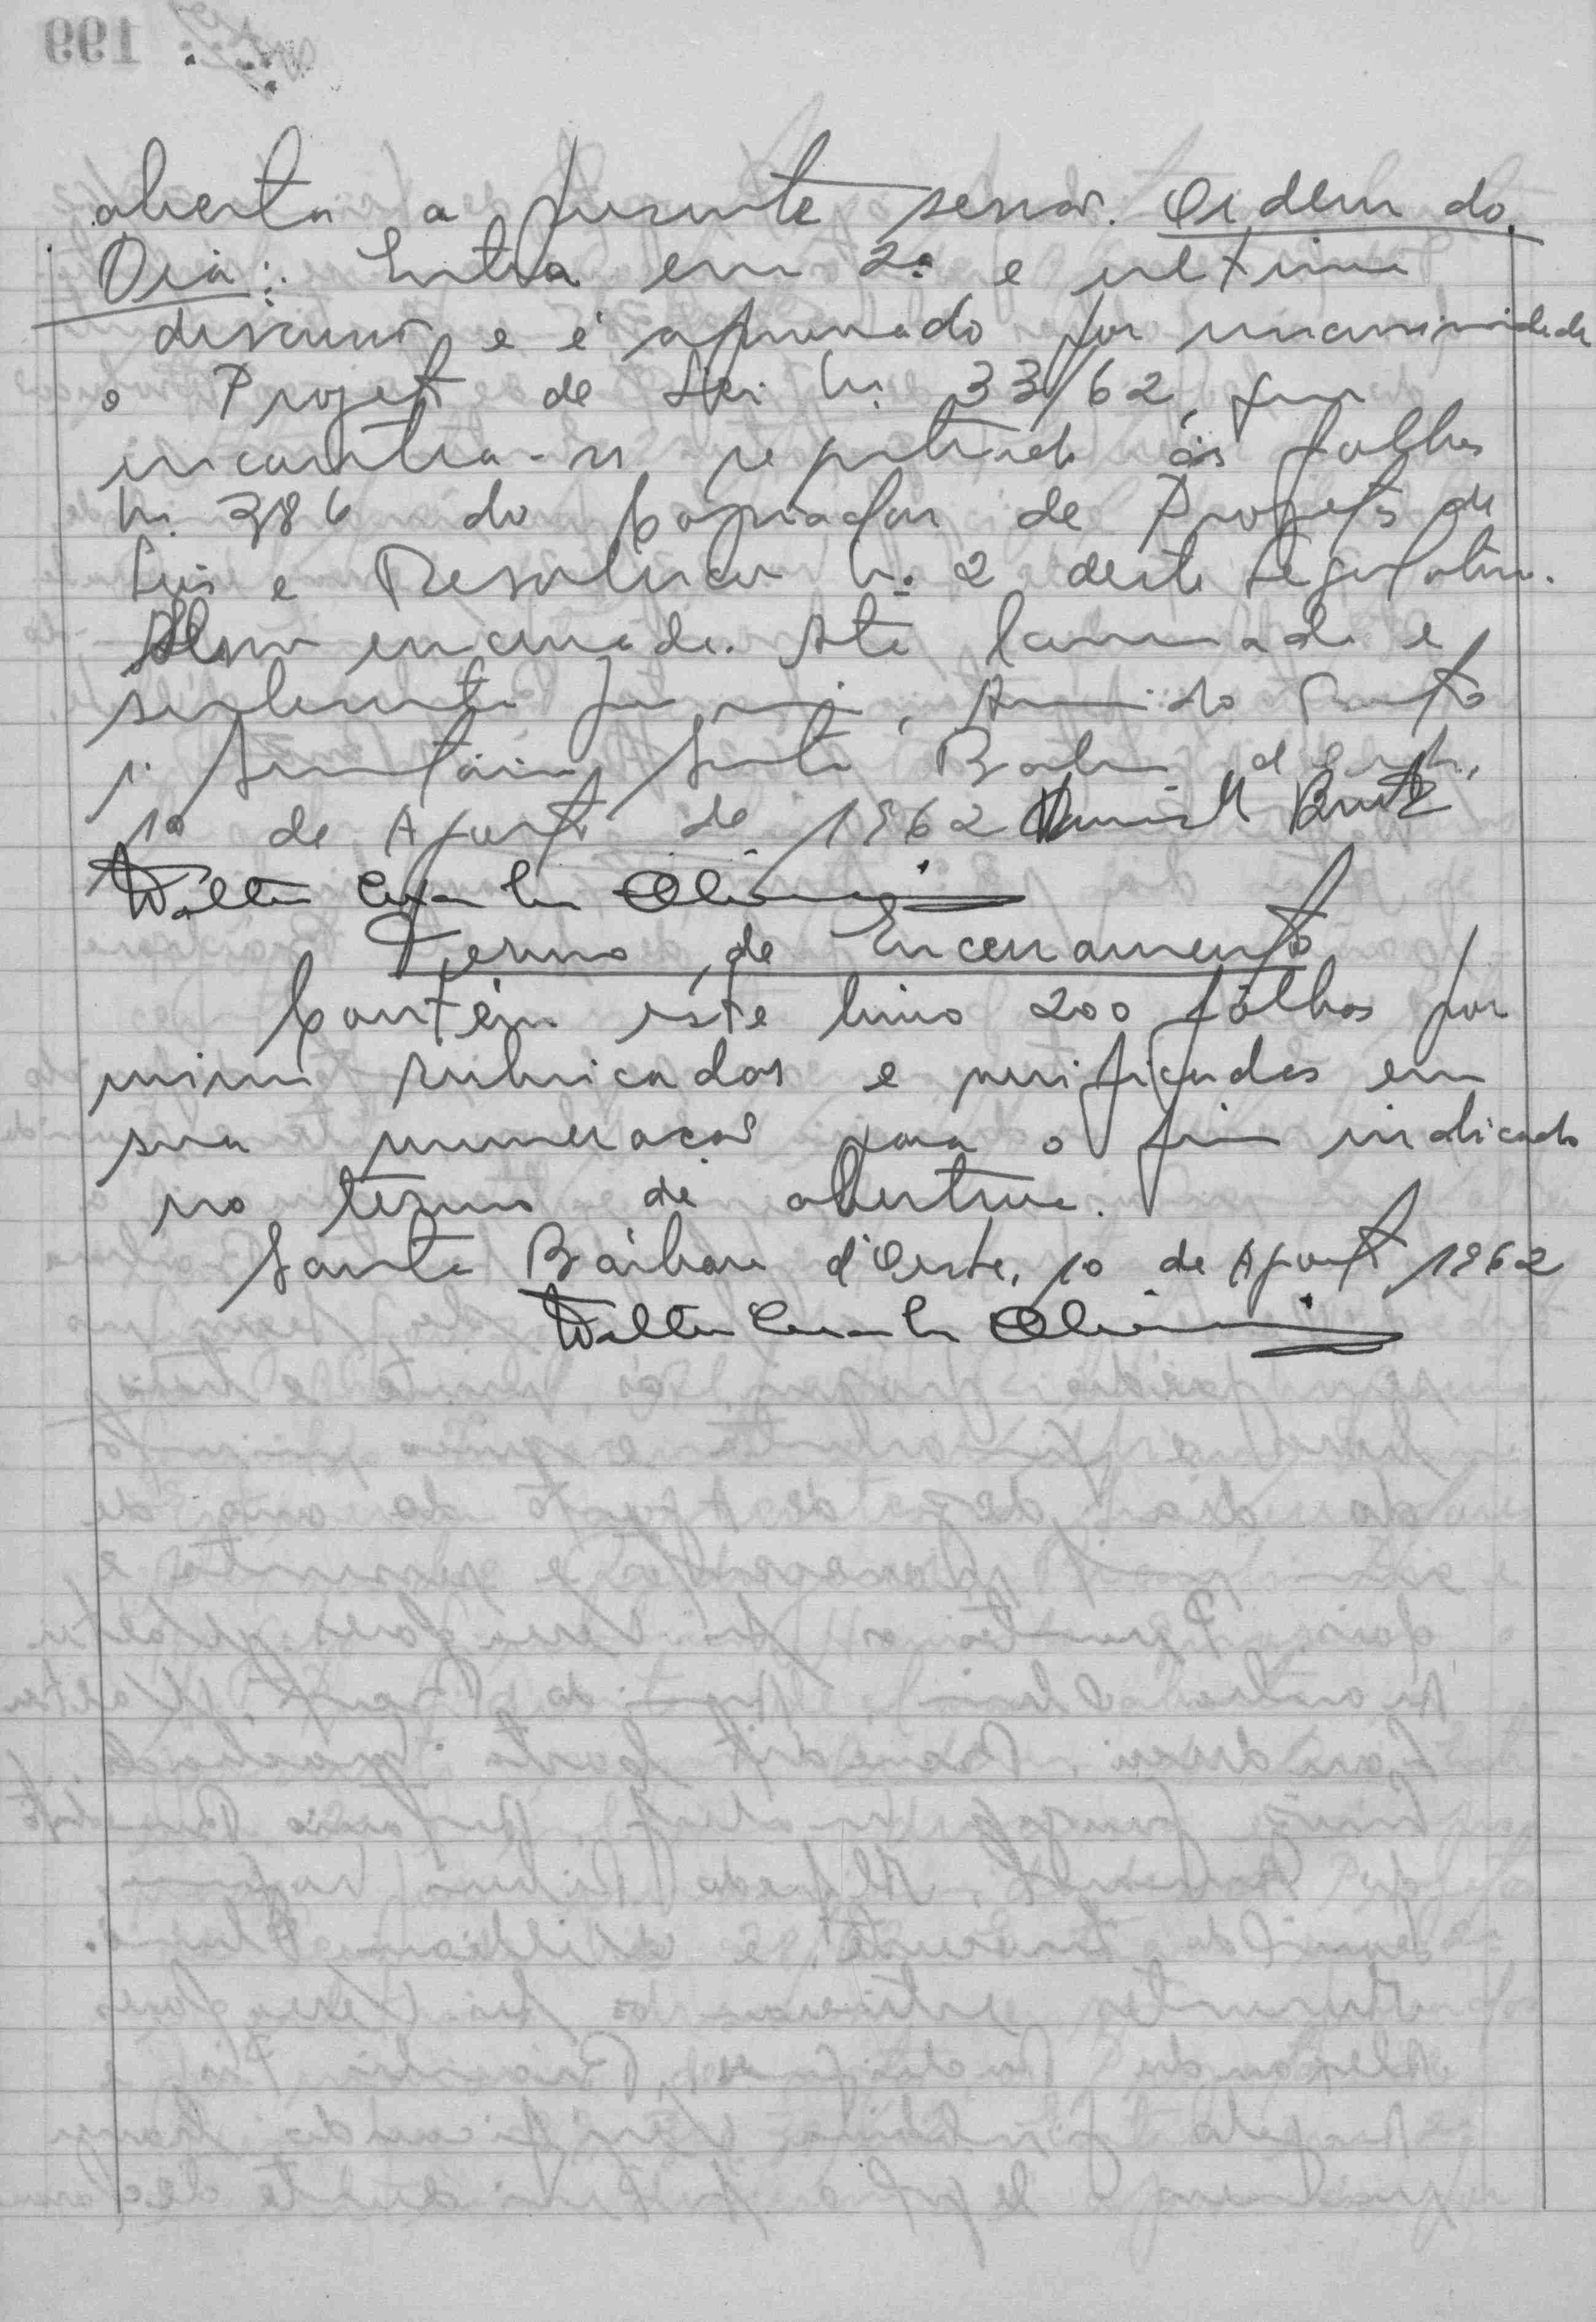 aberta a presente sessão. Ordem do
Dia: Entra em 2ª e ultima
discussão e é aprovado por unanimidade
o Projeto de Lei n. 33/62, que
encontra-se registrado às folhas
n. 386 do Copiador de Projetos de
Leis e Resolucoes n. 2 deste Legislativo.
encerrada. Ata lavrada e
por mim, Armindo
1. Secretário, Santa Barbara d'Oeste,
10 de Agosto de 1962
Walter
Termo de Encerramento
Contém este livro 200 fôlhas por
mim rubricadas e verificadas em
sua numeracão para o fim indicado
no têrmo de abertura.
Santa Bárbara d'Oeste, 10 de Agosto 1962
Walter
199